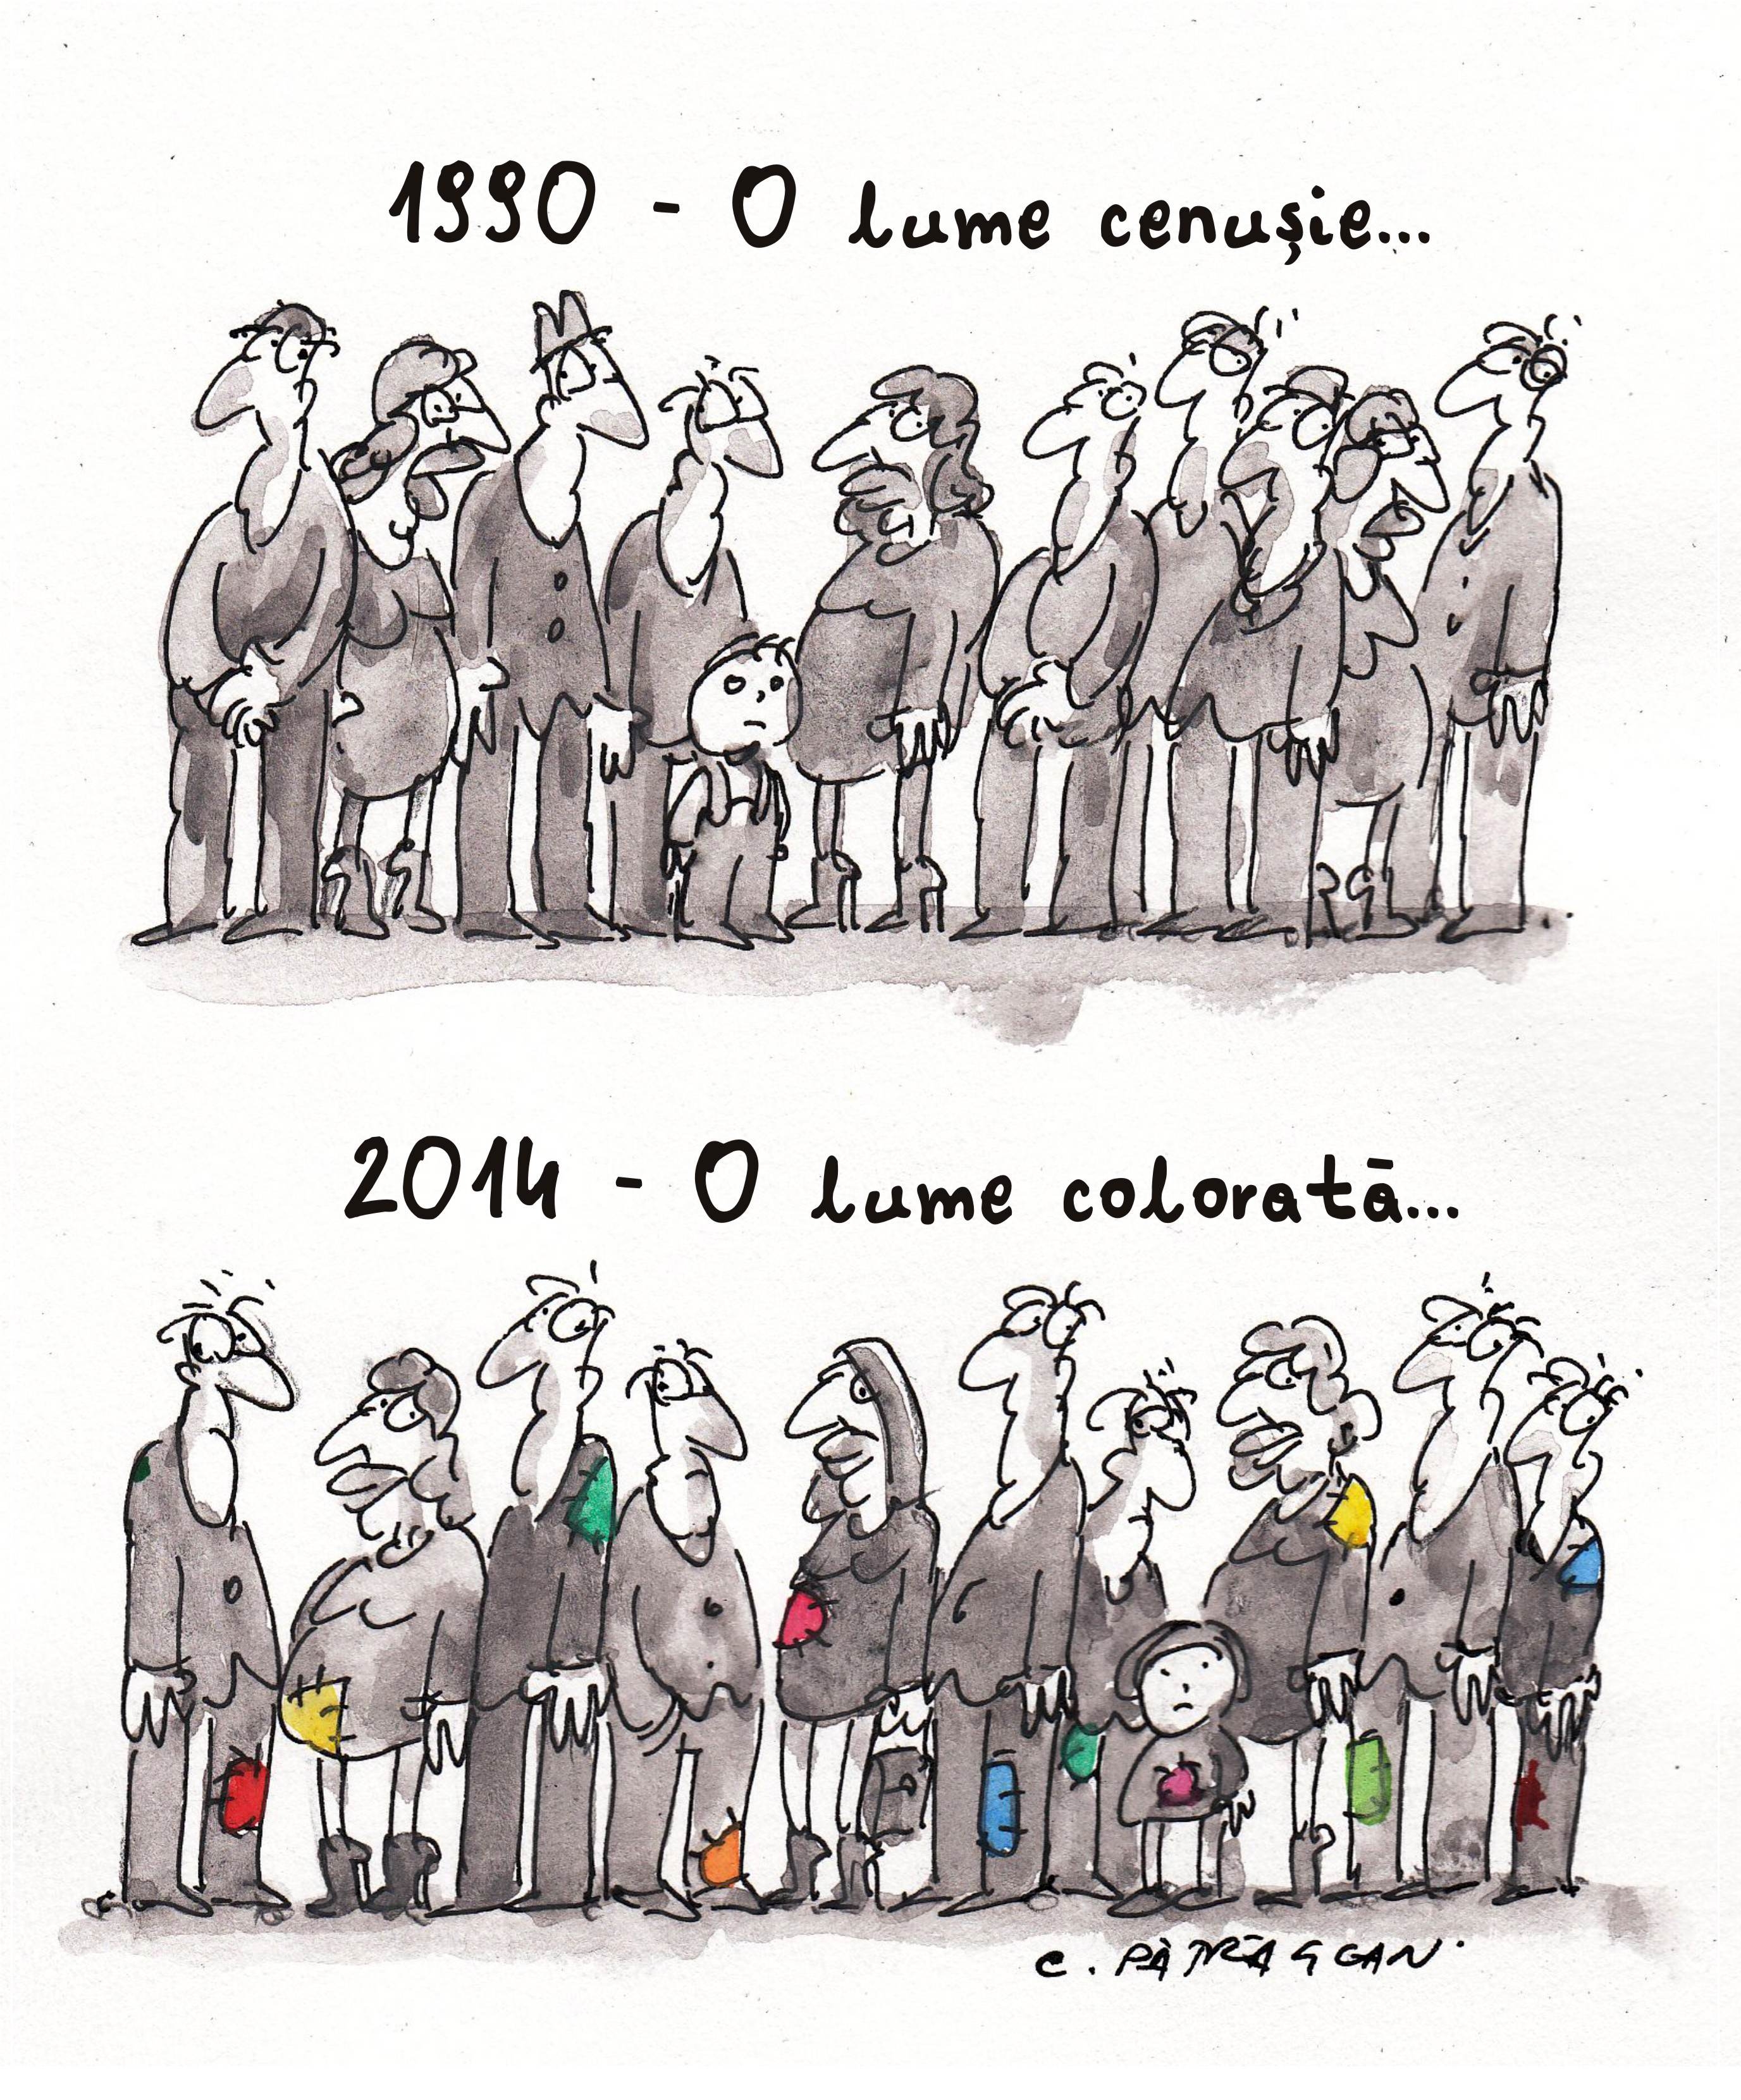 1990 - O lume cenușie...
2014 - O lume colorată...
C. PĂTRĂȘCAN